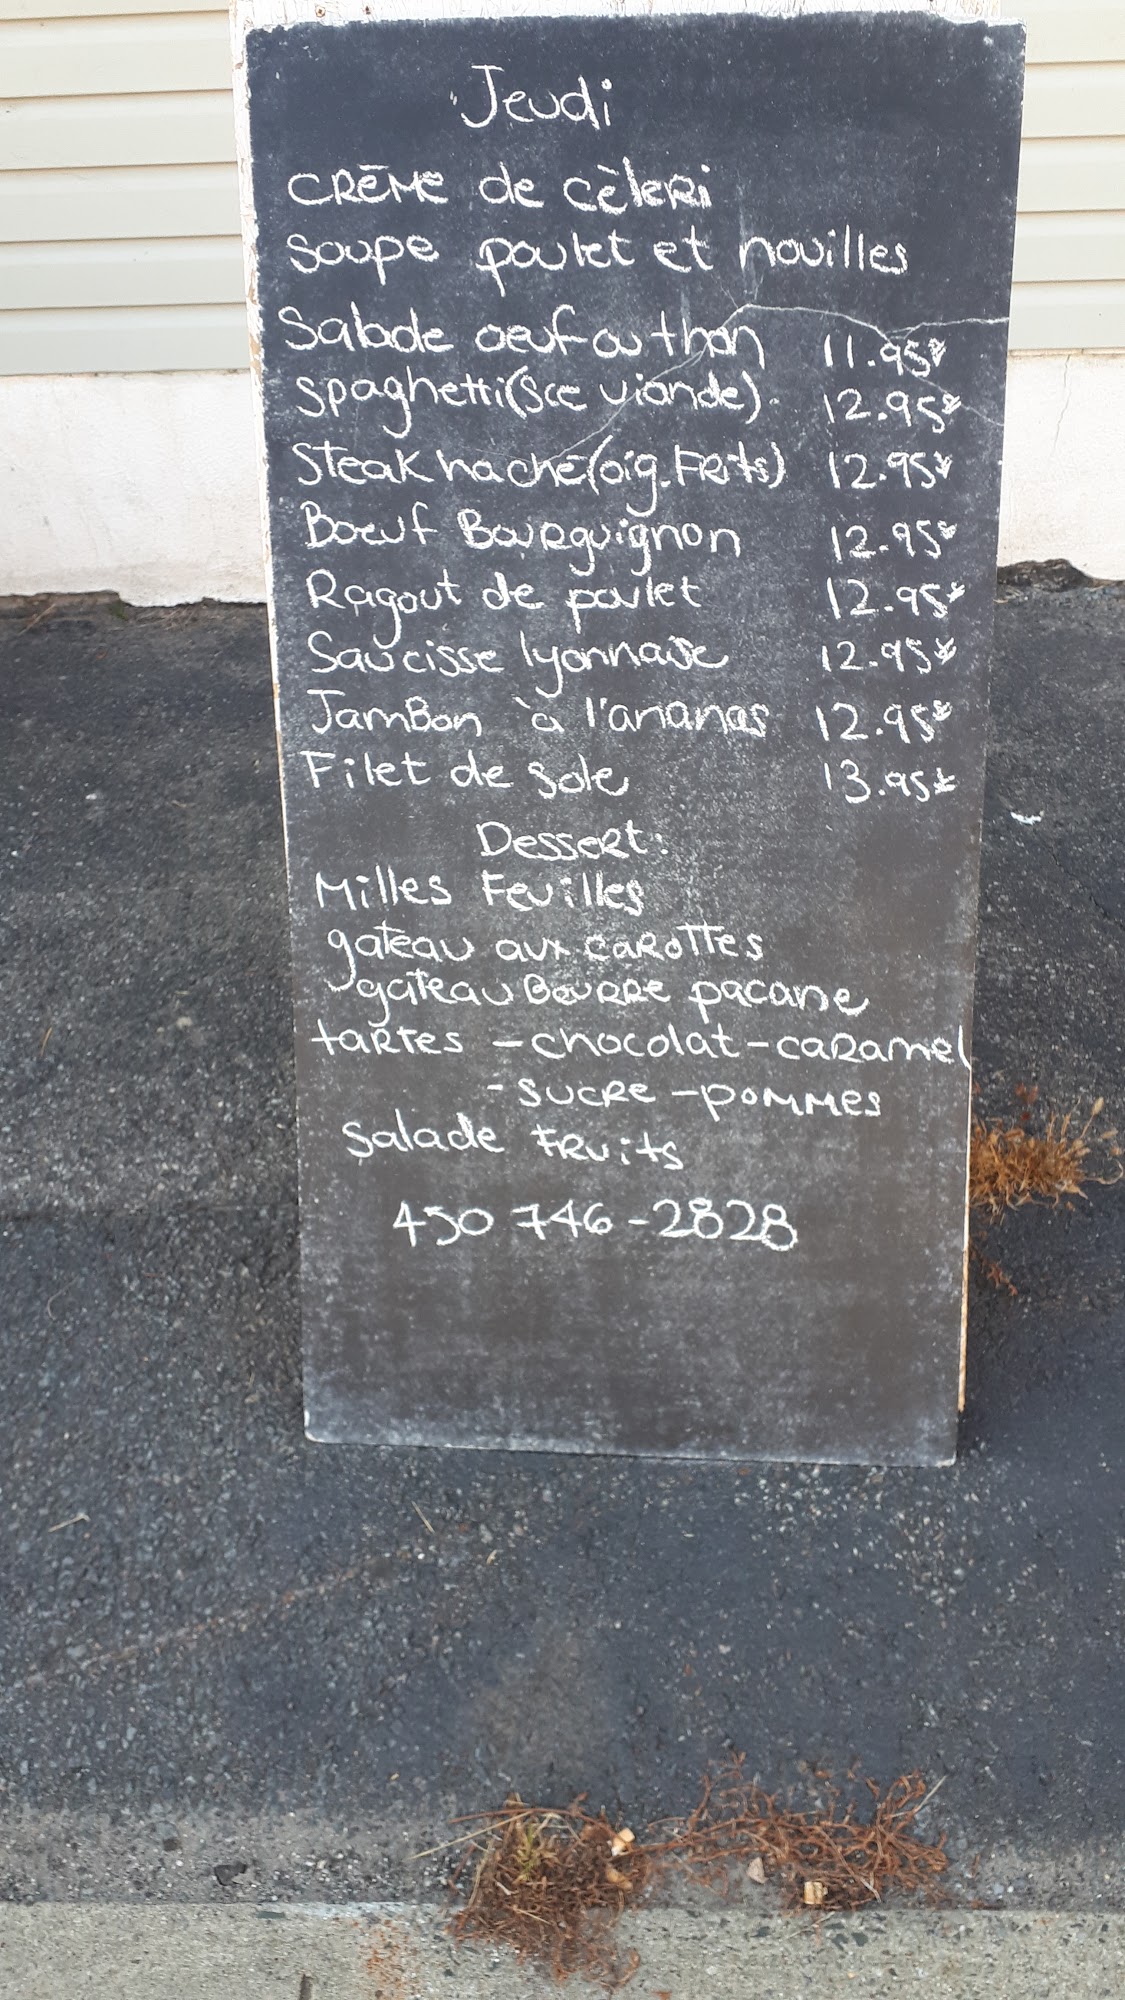 Jeudi
CRÈME de CÈLERI
soupe poulet et nouilles
Salade oeuf ou thon 11.95$
spaghetti (sce viande) 12.95$
Steak haché (oig. FRits) 12.95$
Boeuf BourguigNon 12.95$
Ragout de poulet 12.95$
Saucisse lyonnaise 12.95$
JamBon à l'ananas 12.95$
Filet de sole 13.95$
DesseRt:
Milles Feuilles
gateau aux caRoTTes
gateau BouRRe pacane
taRTes - chocolat - caRamel
- sucRe - poMMes
Salade FRuits
450 746-2828